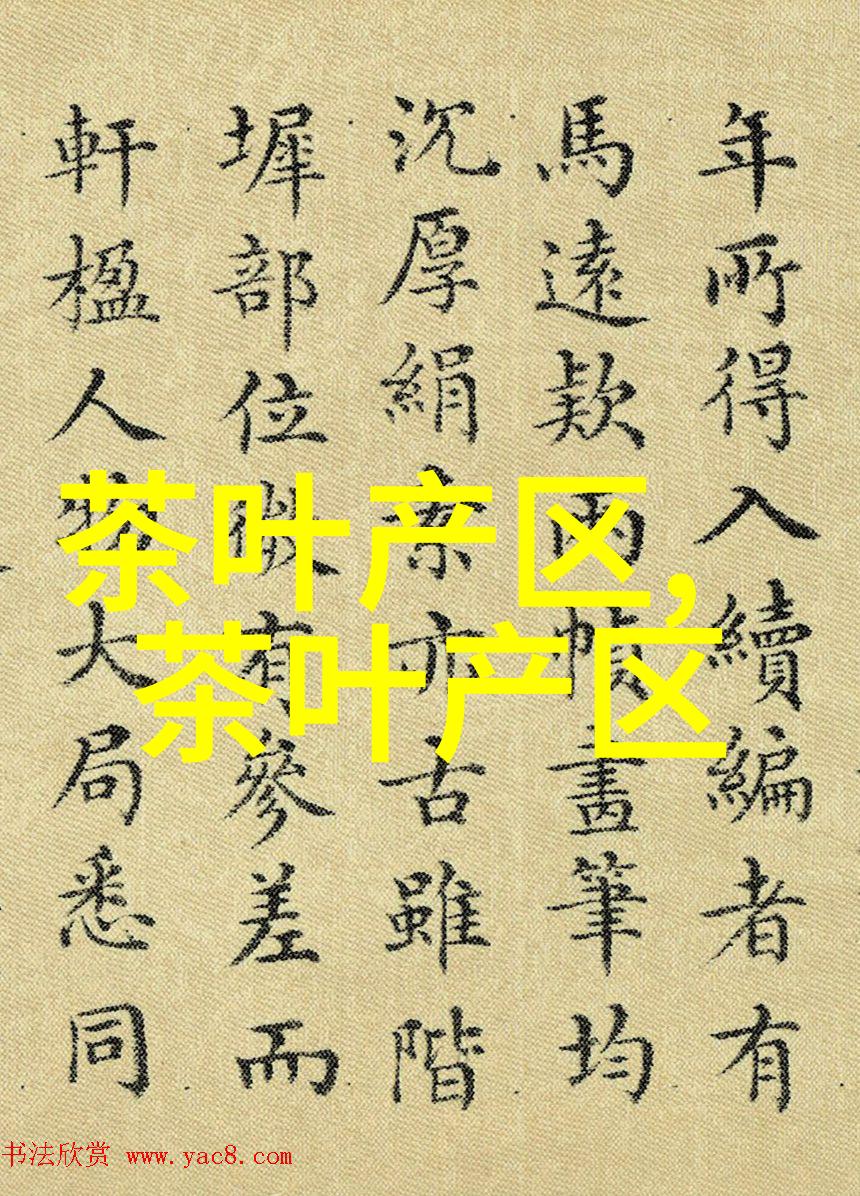 年所得入續編者有
馬遠款兩幀畫筆均
沉厚絹素亦古雖階
墀部位微有參差而
軒楹人物大局悉同
茶叶产区,
茶叶产区
书法欣赏 www.yac8.com